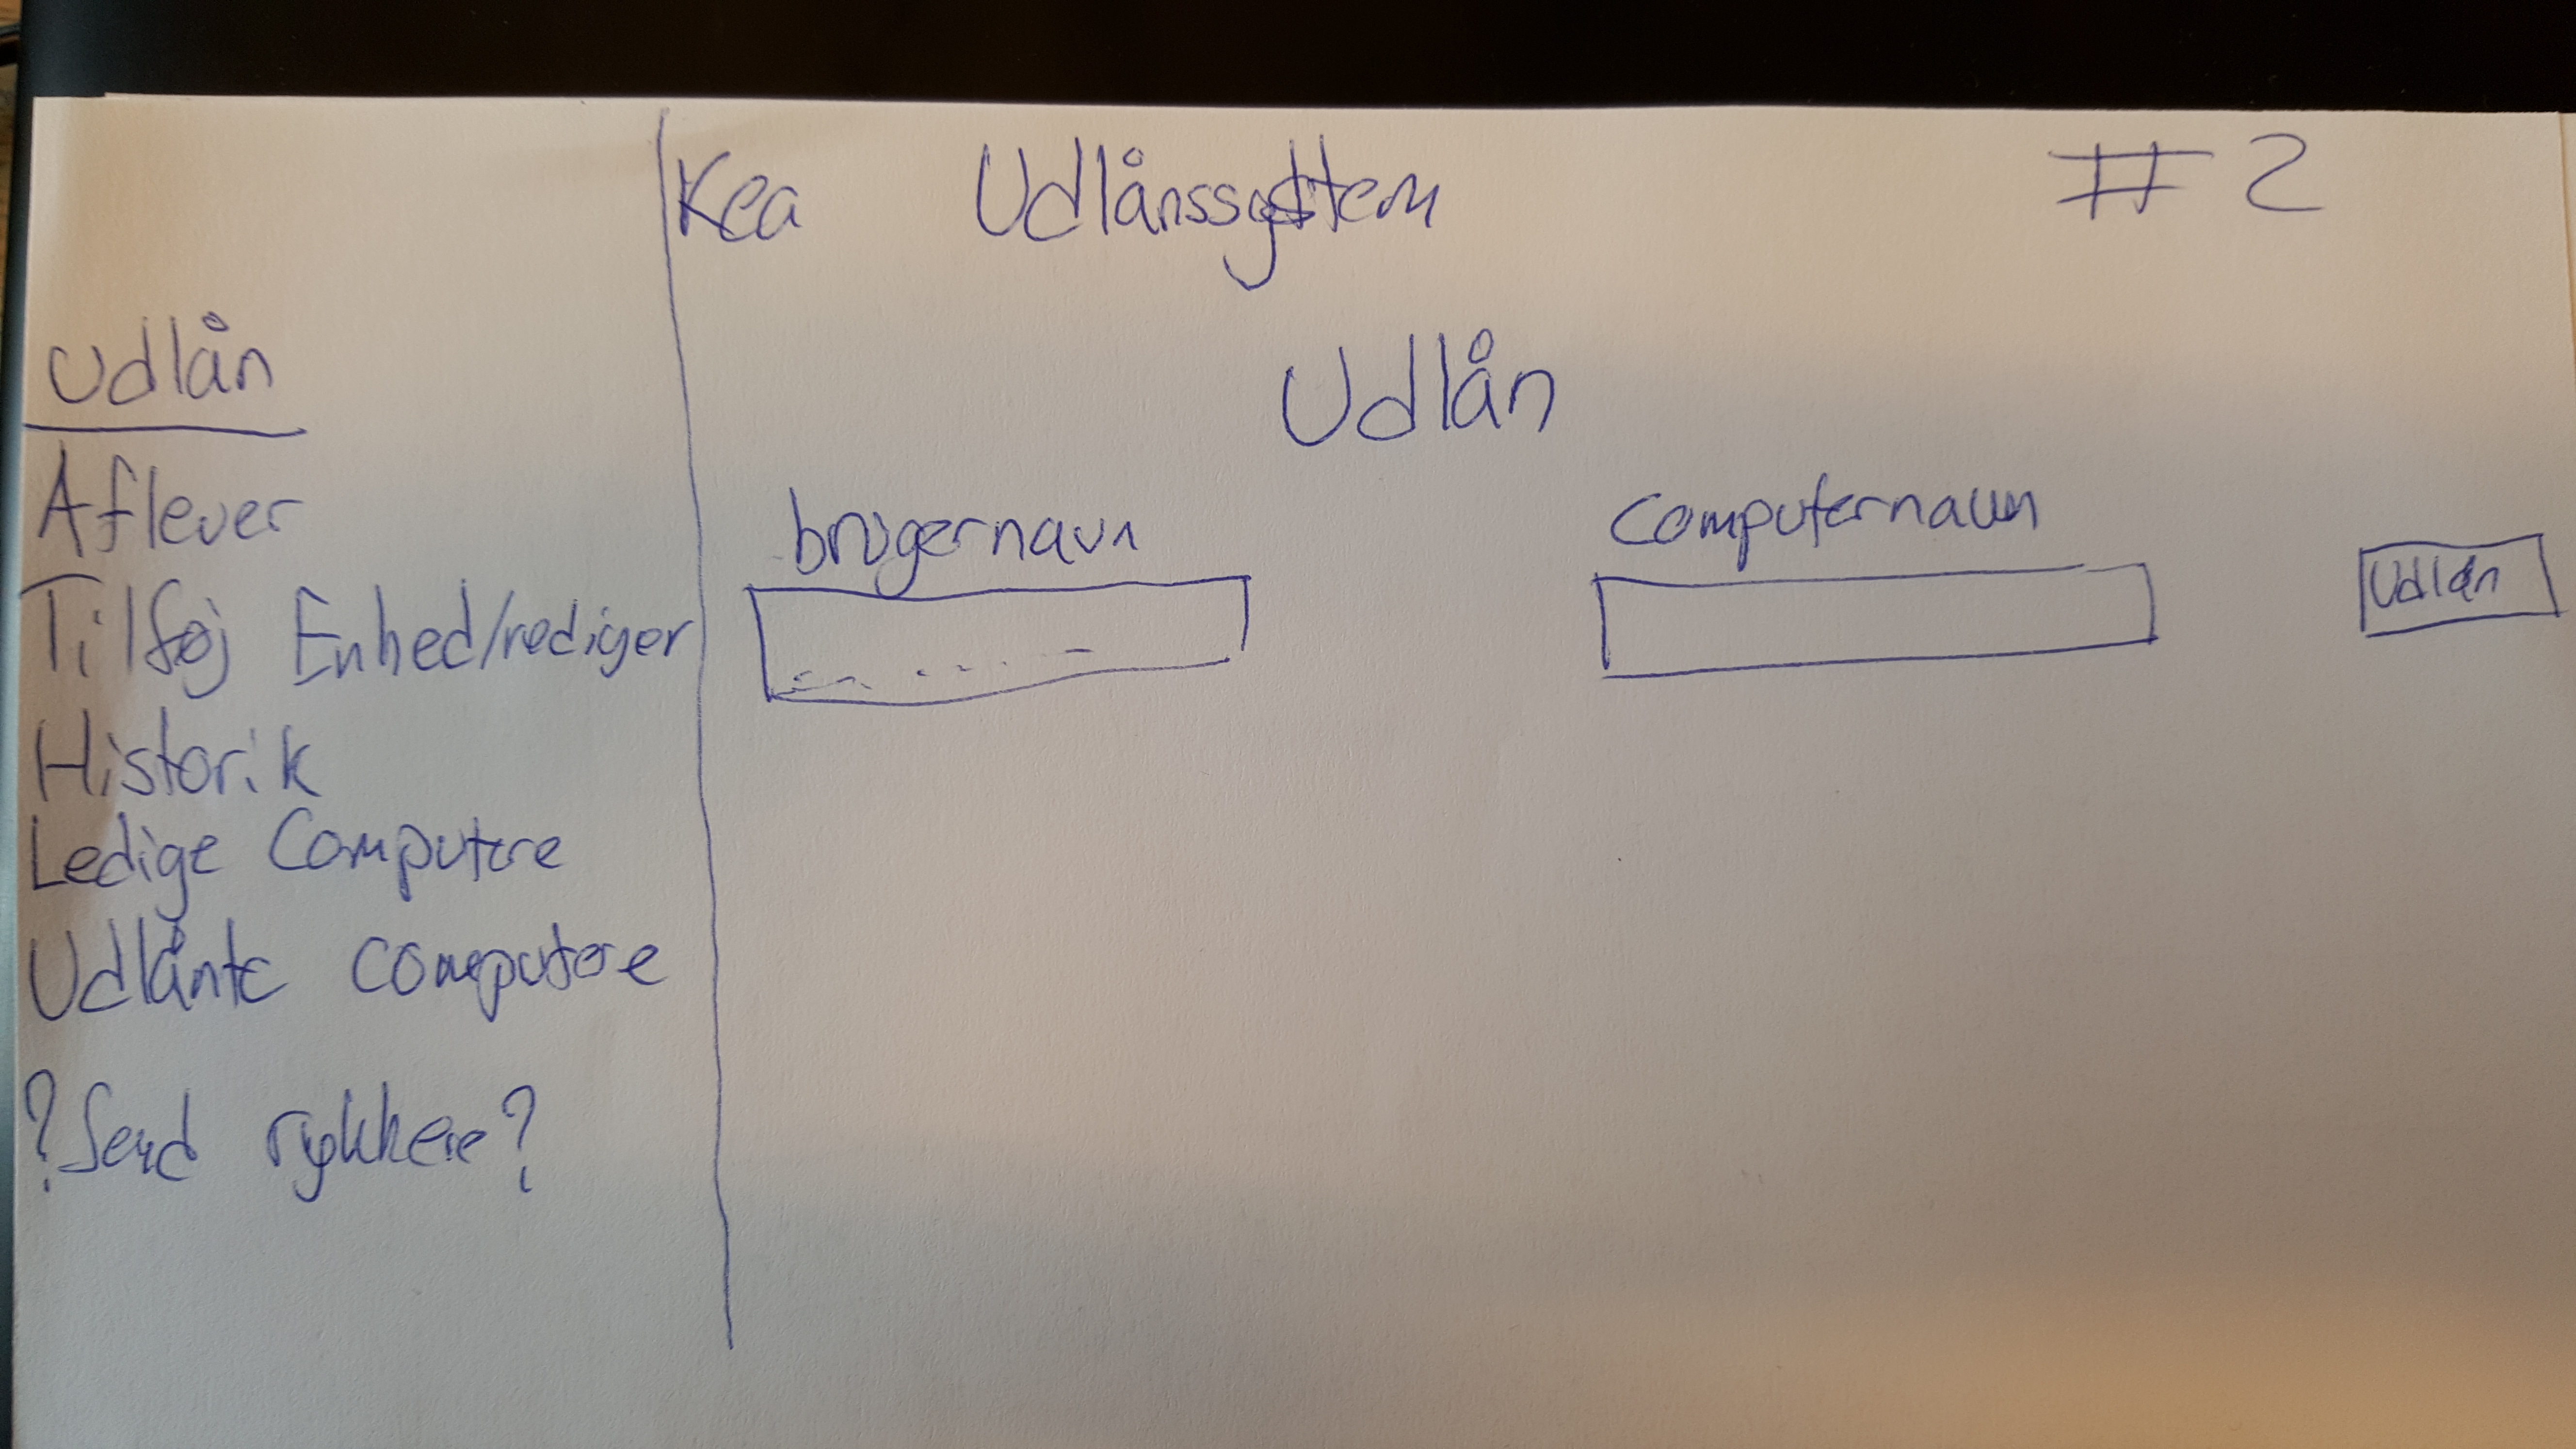 Kea Udlånssystem #2
Udlån
Aflever
Tilføj Enhed/rediger
Historik
Ledige Computere
Udlånte computere
?Send rykkere?
Udlån
brugernavn
Computernavn
Udlån